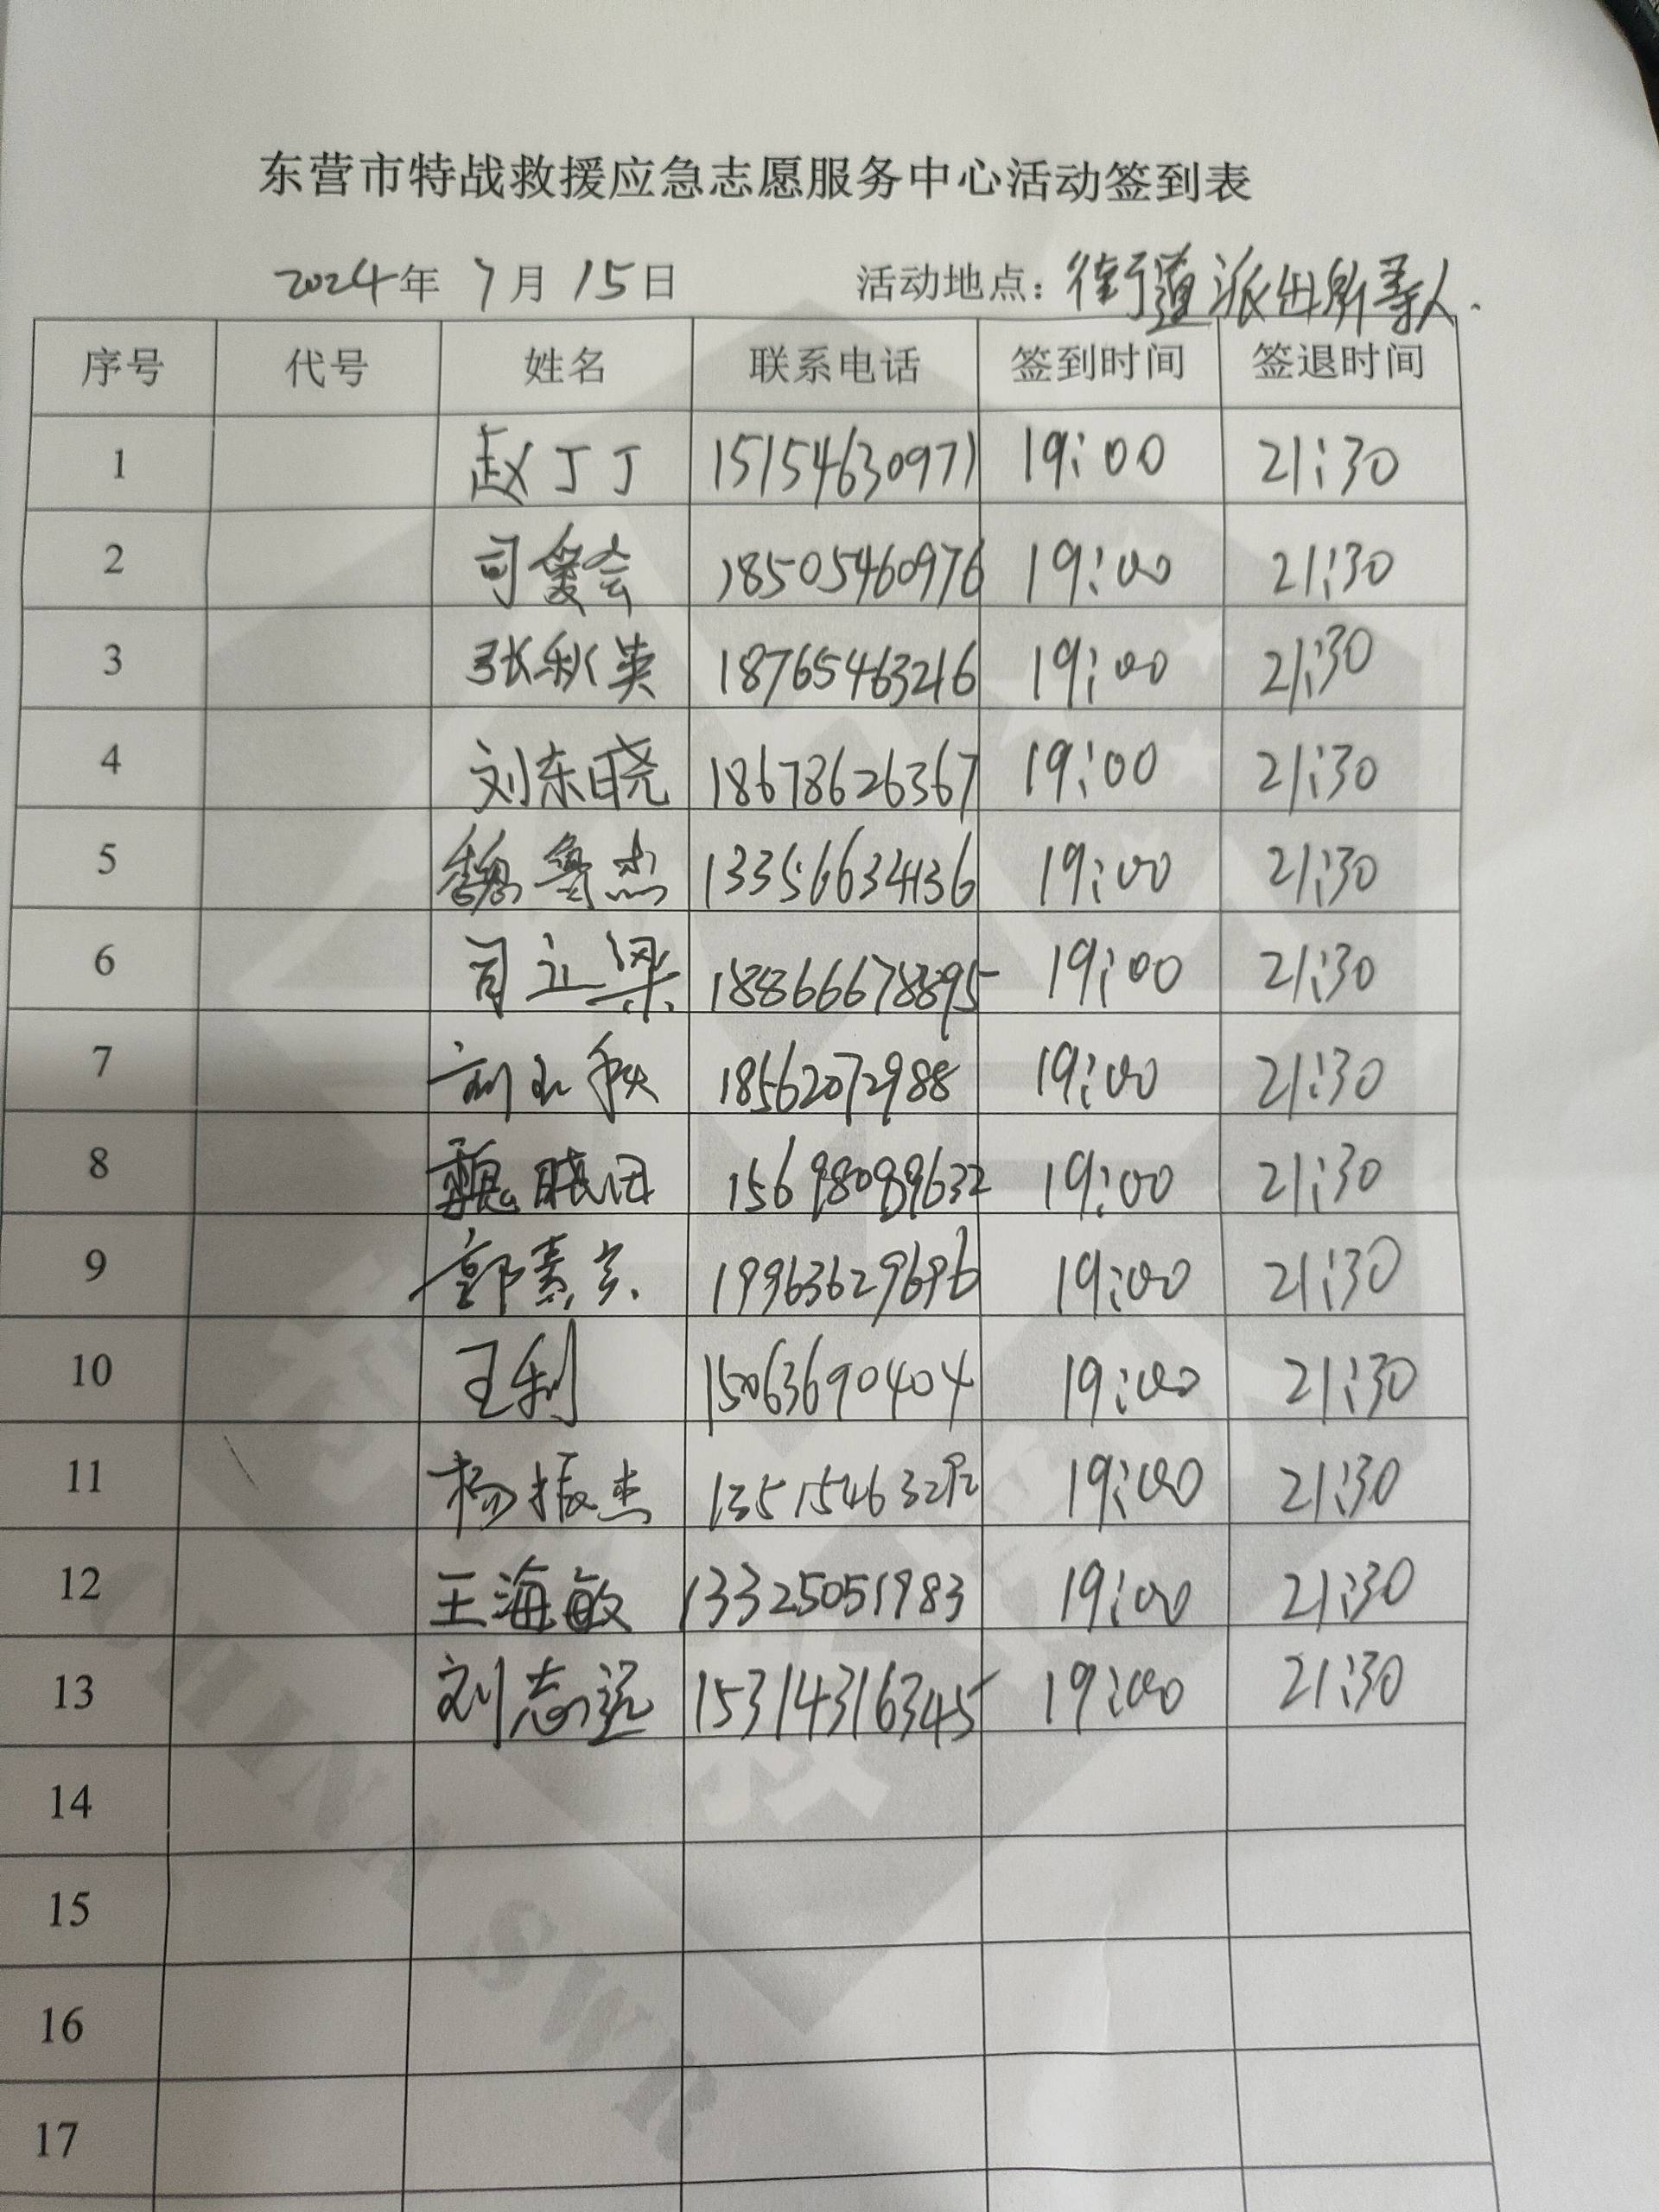 东营市特战救援应急志愿服务中心活动签到表
2024年 7月 15日 活动地点：街道派出所寻人.
序号 代号 姓名 联系电话 签到时间 签退时间
1 赵丁丁 15154630971 19:00 21:30
2 司爱会 18505460976 19:00 21:30
3 张秋英 18765463216 19:00 21:30
4 刘东晓 18678626367 19:00 21:30
5 魏鲁杰 13356634136 19:00 21:30
6 司立梁 18866678895 19:00 21:30
7 18562072988 19:00 21:30
8 魏晓田 15698089632 19:00 21:30
9 19963629696 19:00 21:30
10 王利 15063690404 19:00 21:30
11 杨振杰 19:00 21:30
12 王海敏 13325051983 19:00 21:30
13 刘志远 15314316345 19:00 21:30
14
15
16
17
CHINA SWR